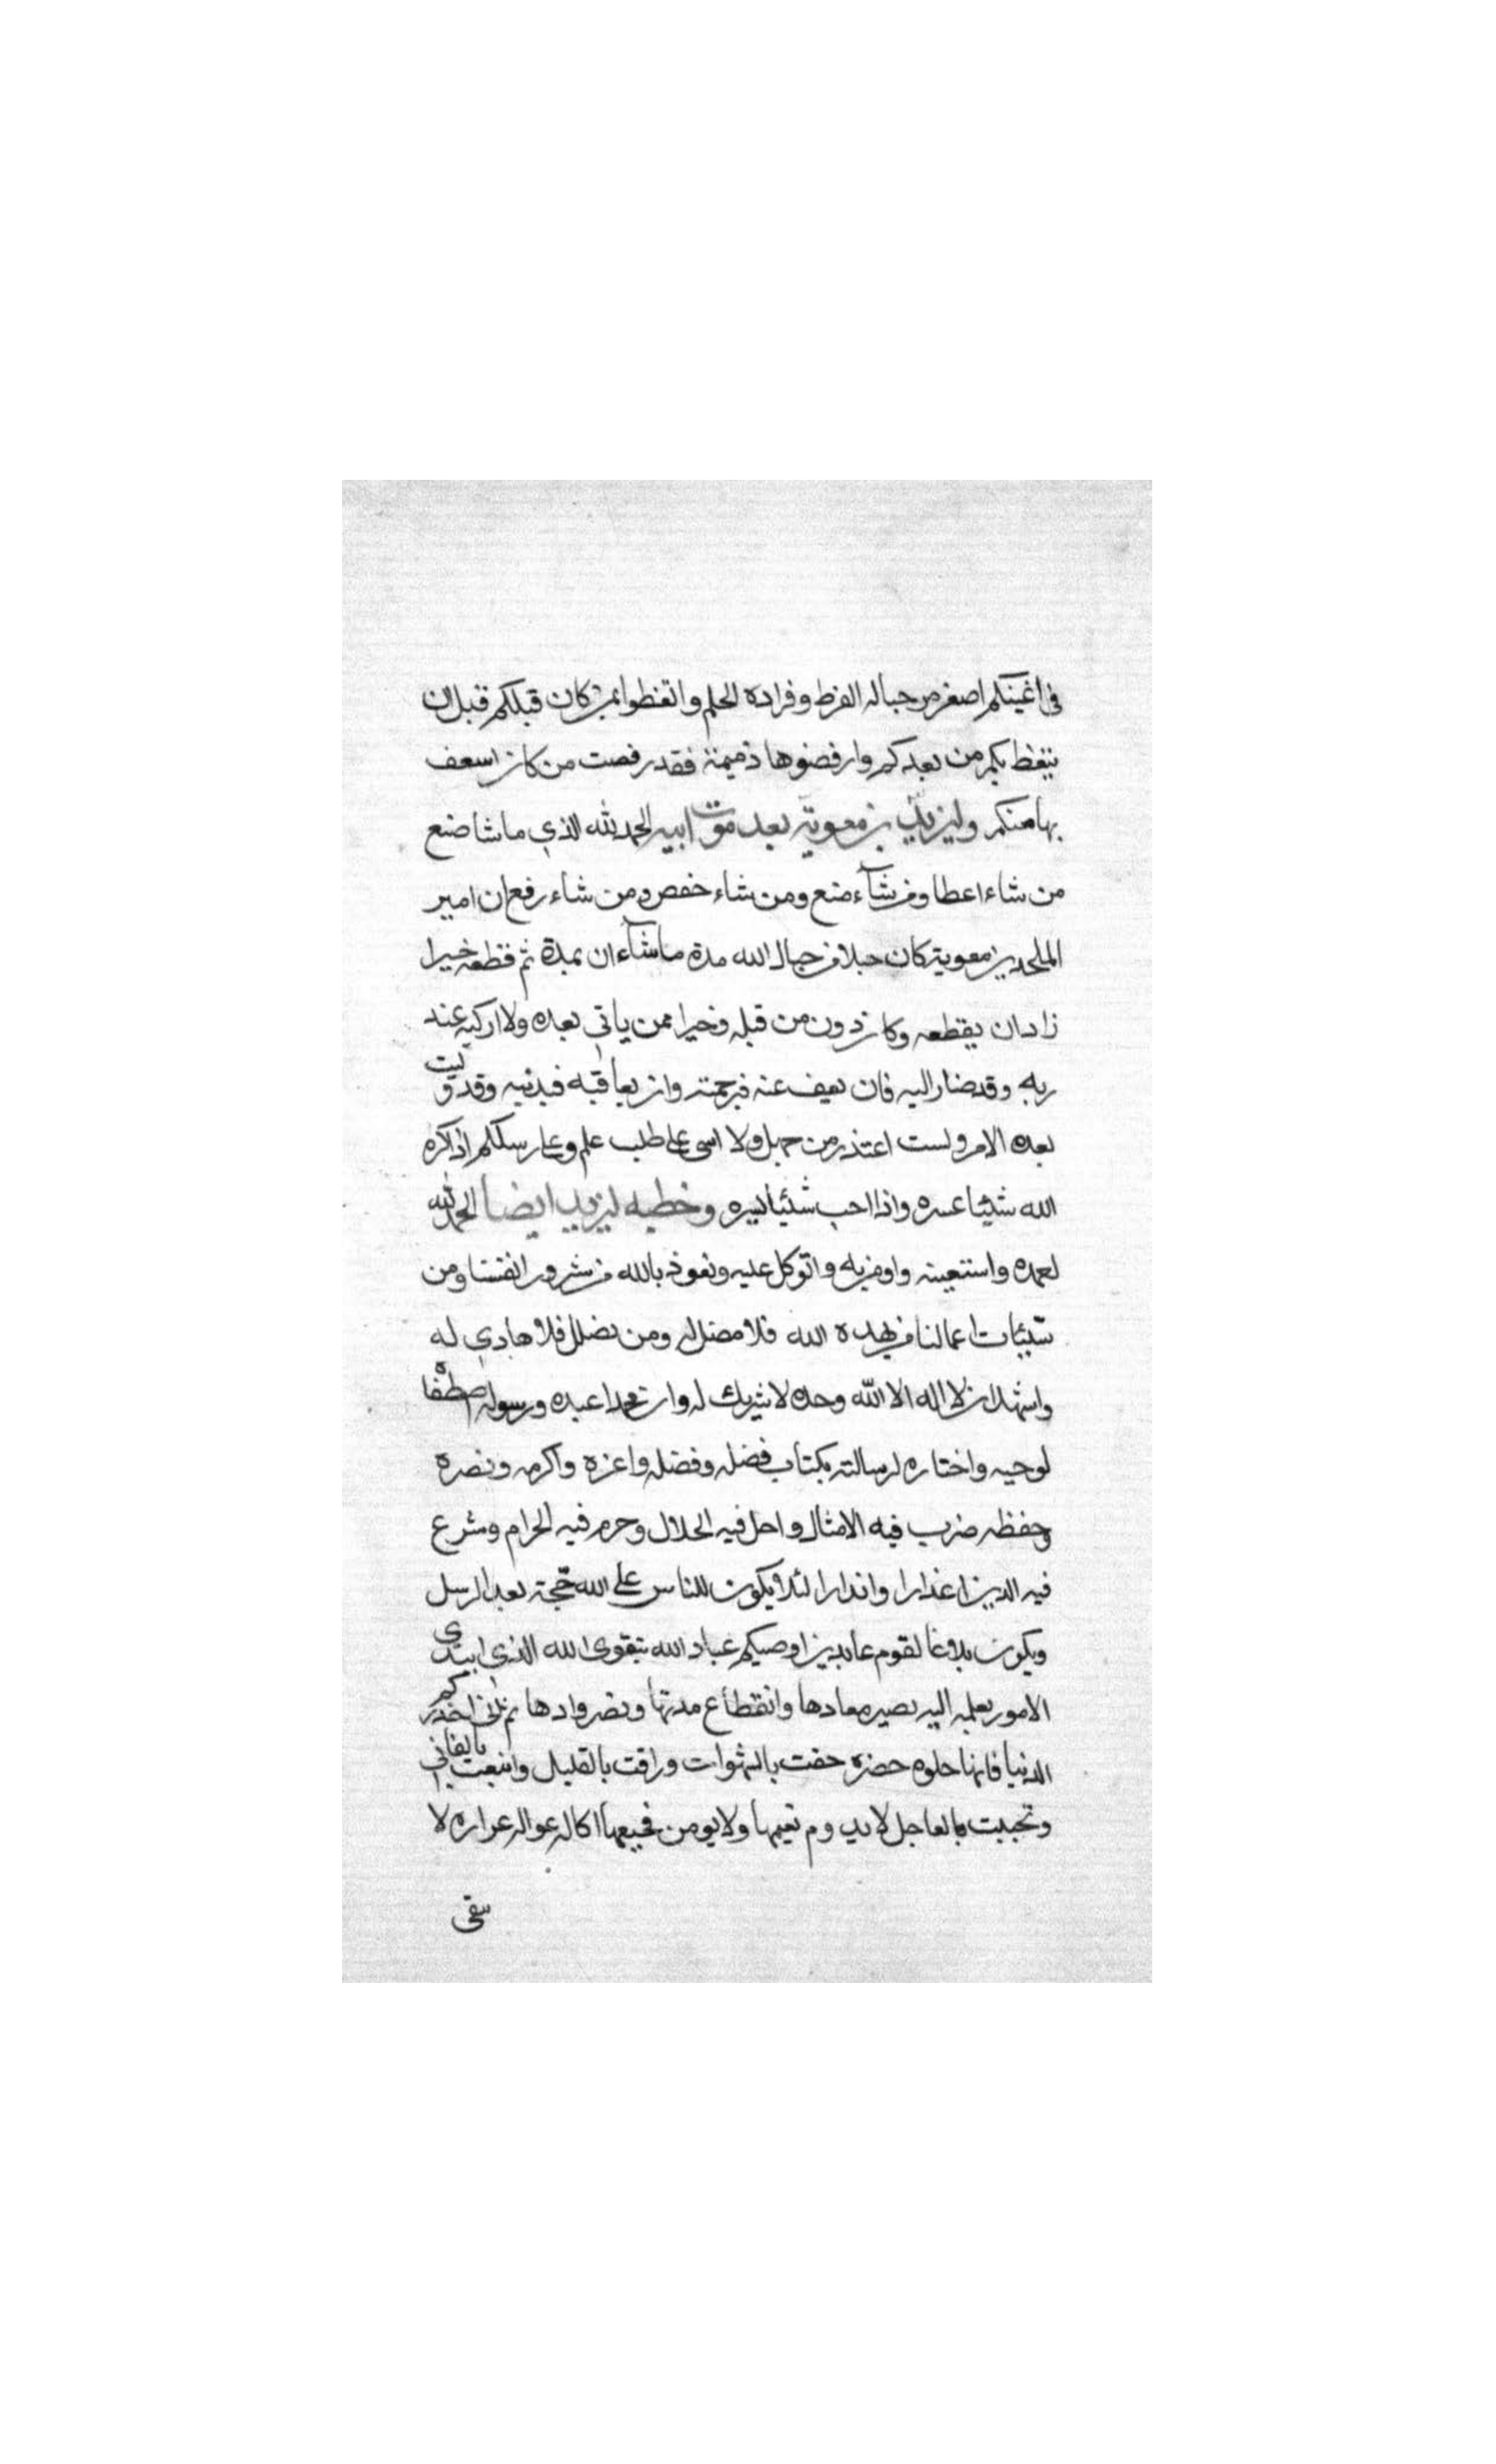 في اعينكم اصغر من حباله القرط وفراده الحلم واتعظوا بمن كان قبلكم قبل ان
يتعظ بكم من بعدكم وارفضوها ذميمة فقد رفصت من كان اسعف
بها منكم وليزيد بن معوية بعد موت ابيه الحمد لله الذي ما شا صنع
من شاء اعطا ومن شآء منع ومن شاء خفص ومن شاء رفع ان امير
الملحدين معوية كان حبلا من حبال الله مدة ما شآء ان يمدة ثم قطعه خيرا
زاد ان يقطعه وكان دون من قبله وخيرا ممن ياتي بعده ولا ازكيه عند
ربه وقد صار اليه فان يعف عنه فبرحمته وان يعاقبه فبذنبه وقد وليت
بعده الامر ولست اعتذر من جهل ولا اسى على طلب علم وعلى رسلكم اذا كره
الله شيئا عسره واذا احب شئيا يسره وخطبه ليزيد ايضا الحمد لله
احمده واستعينه واومن به واتوكل عليه ونعوذ بالله من شرور انفسنا ومن
سيئات اعمالنا من يهده الله فلا مضل له ومن يضلل فلا هادي له
واشهد ان لا اله الا الله وحده لا شريك له وان محمدا عبده ورسوله اصطفاه
لوحيه واختاره لرسالته بكتاب فضله وفضله واعزه واكرمه ونصره
وحفظه ضرب فيه الامثال واحل فيه الحلال وحرم فيه الحرام وشرع
فيه الدين اعذارا وانذارا لئلا يكون للناس على الله حجة بعد الرسل
ويكون بلاغا لقوم عابدين اوصيكم عباد الله بتقوى الله الذي ابتدى
الامور بعلمه اليه يصير معادها وانقطاع مدتها وتصر وادها ثم اني احذركم
الدنيا فانها حلوه حضره حفت بالشهوات وراقت بالقليل واينعت بالفاني
وتحببت بالعاجل لا يدوم نعيمها ولا يومن فجيعها اكاله عواله عراره لا
تبقى